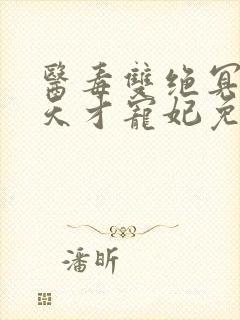 醫毒雙绝冥
天才寵妃免
潘昕